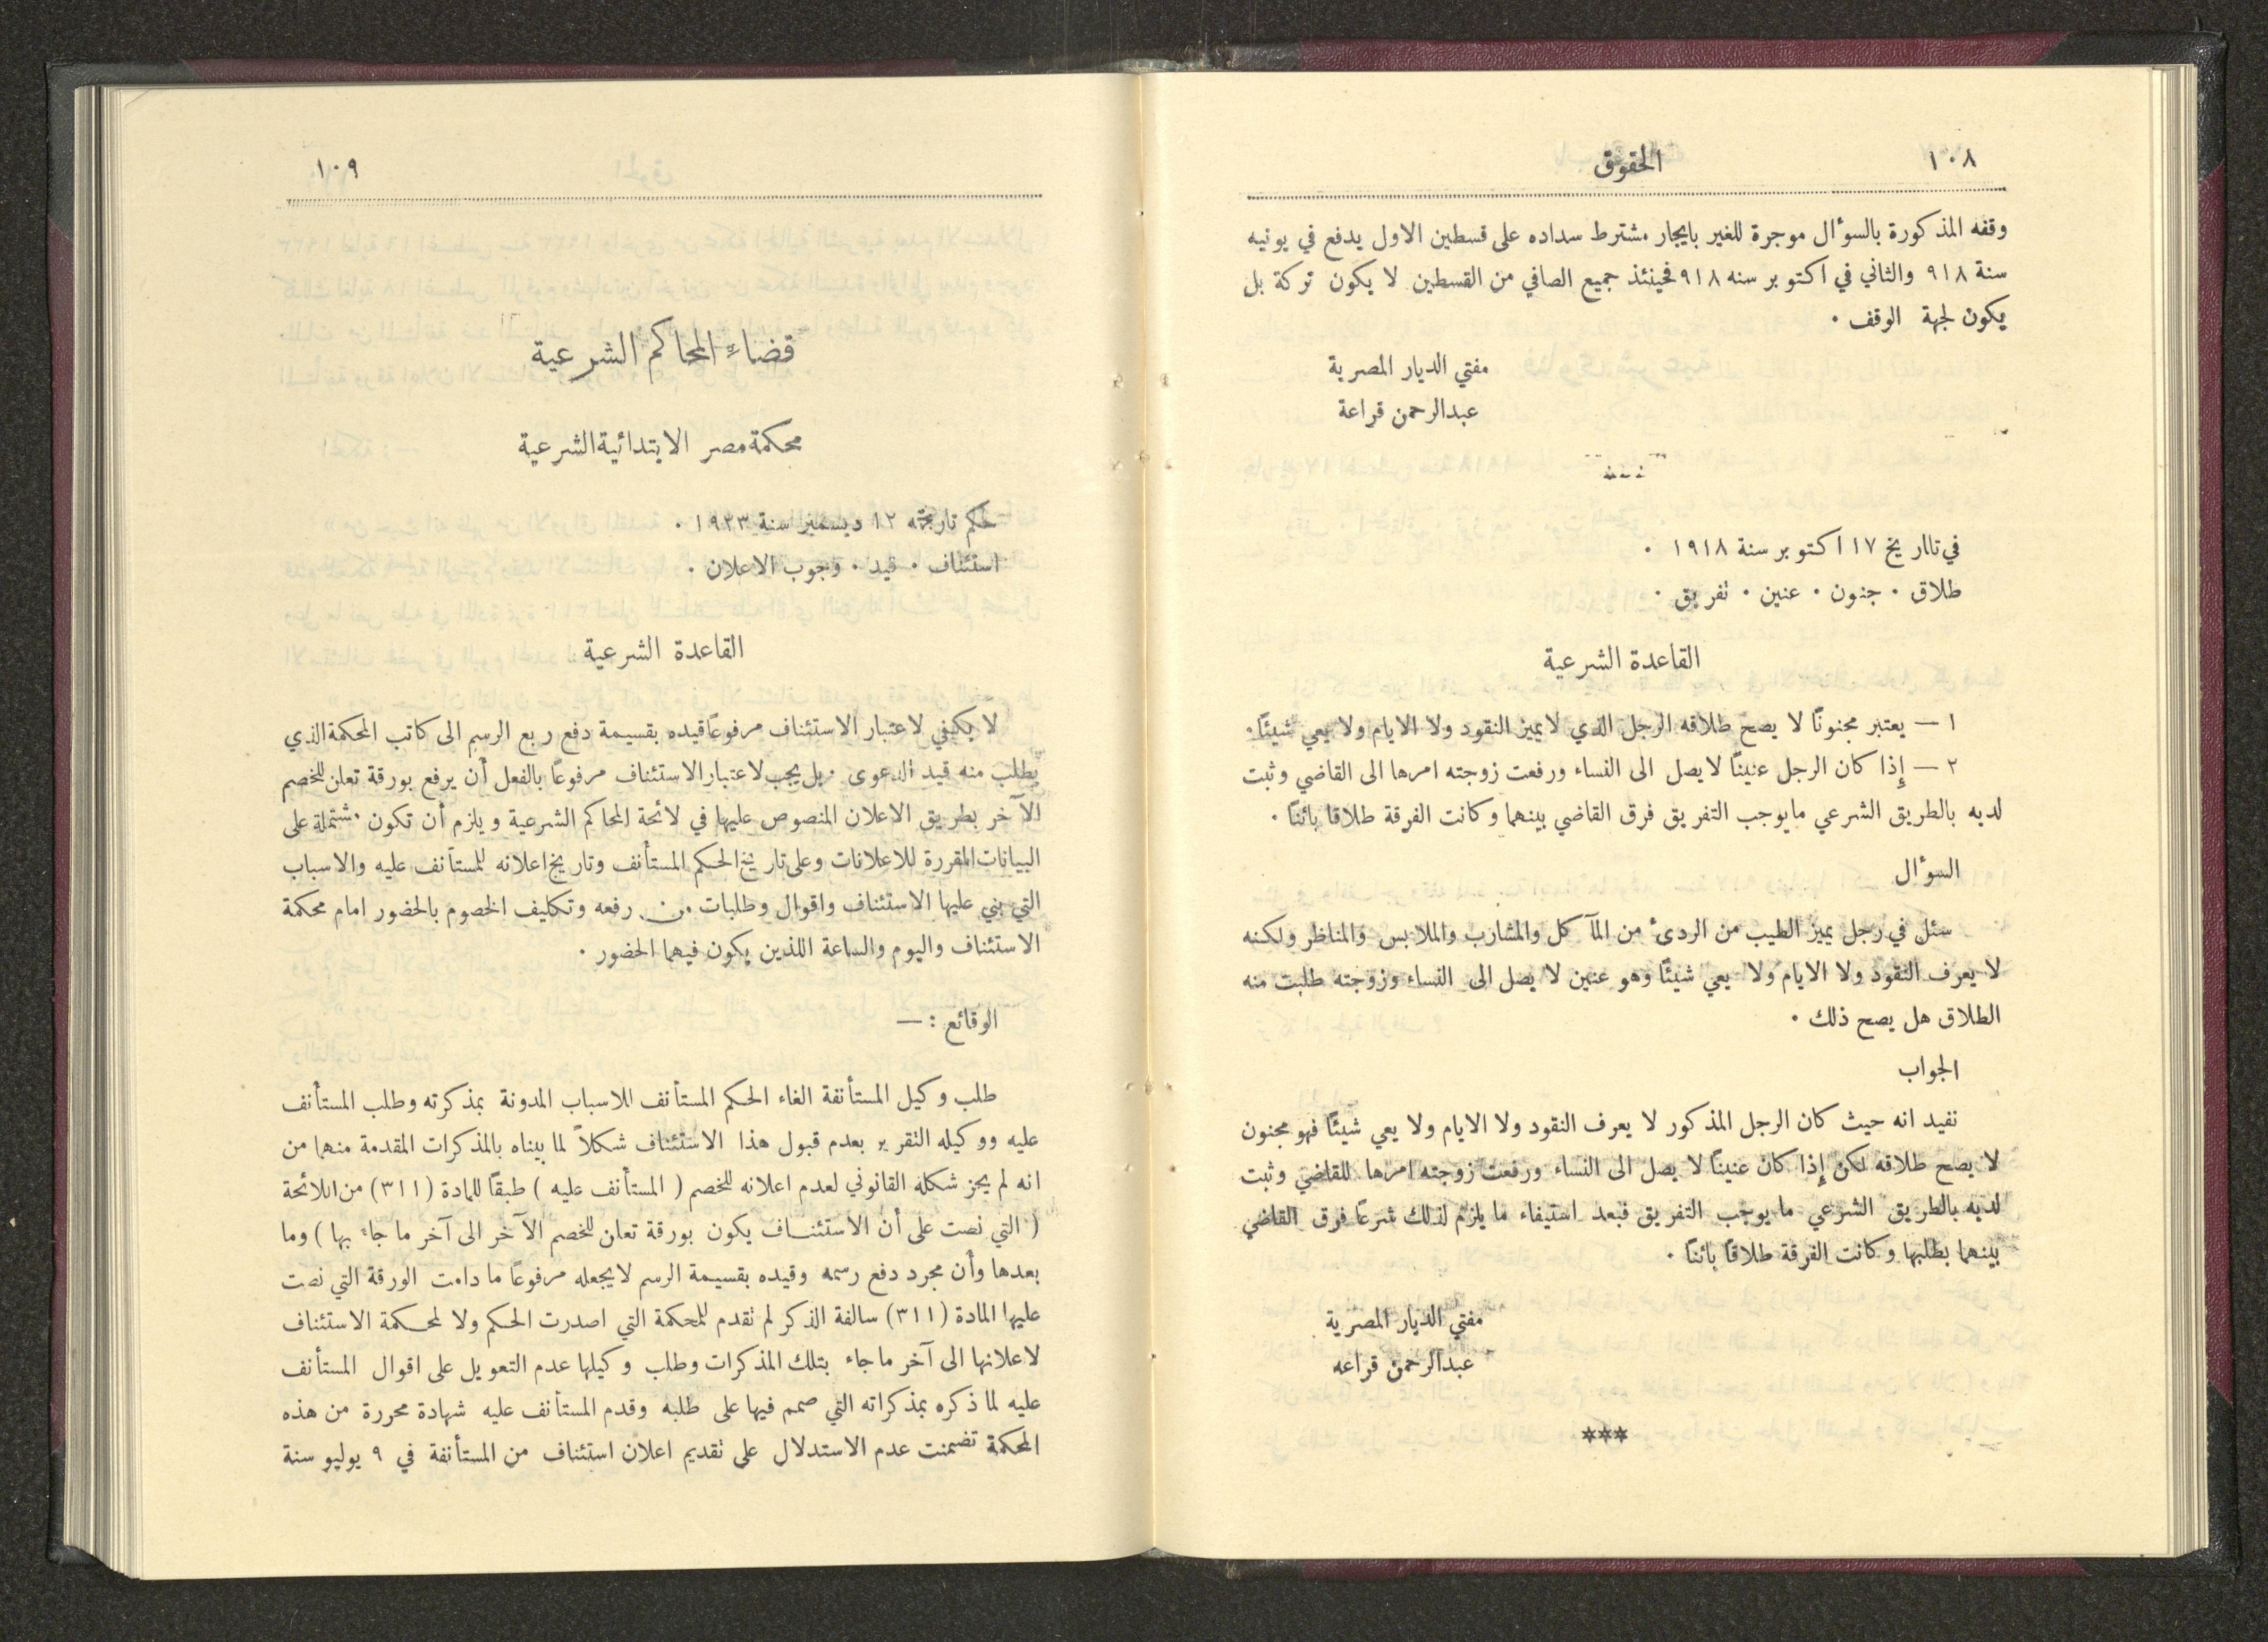 ١٠٨
الحقوق
وقفه المذكورة بالسوٴال موجرة للغير بايجار مشترط سداده على قسطين الاول يدفع في يونيه
سنة ٩١٨ والثاني في اكتوبر سنه ٩١٨ فحينئذ جميع الصافي من القسطين لا يكون تركة بل
يكون لجهة الوقف ٠
مفتي الديار المصرية
عبدالرحمن قراعة
في تالار يخ ١٧ اكتوبر سنة ١٩١٨ ٠
طلاق ٠ جنون ٠ عنين ٠ تفريق ٠
القاعدة الشرعية
١ — يعتبر مجنونًا لا يصح طلاقه الرجل الذي لا يميز النقود ولا الايام ولا يعي شيئًا٠
٢ — إِذا كان الرجل عنينًا لا يصل الى النساء ورفعت زوجته امرها الى القاضي وثبت
لديه بالطريق الشرعي مايوجب التفريق فرق القاضي بينهما وكانت الفرقة طلاقا بائنًا ٠
السوٴال
سئل في رجل يميز الطيب من الردئ من المآكل والمشارب والملابس والمناظر ولكنه
لا يعرف النقود ولا الايام ولا يعي شيئًا وهو عنين لا يصل الى النساء وزوجته طلبت منه
الطلاق هل يصح ذلك ٠
الجواب
نفيد انه حيث كان الرجل المذكور لا يعرف النقود ولا الايام ولا يعي شيئًا فهو مجنون
لا يصح طلاقه لكن إِذا كان عنينًا لا يصل الى النساء ورفعت زوجته امرها للقاضي وثبت
لديه بالطريق الشرعي ما يوجب التفريق فبعد استيفاء ما يلزم لذلك شرعًا فرق القاضي
بينهما بطلبها وكانت الفرقة طلاقًا بائنًا ٠
مفتي الديار المصرية
عبدالرحمن قراعه
***
١٠٩
قضاء المحاكم الشرعية
محكمة مصر الابتدائية الشرعية
حكم تاريخه ١٢ ديسمبر سنة ١٩٢٣ ٠
استئناف ٠ قيد ٠ وجوب الاعلان ٠
القاعدة الشرعية
لا يكفي لاعتبار الاستئناف مرفوعًا قيده بقسيمة دفع ربع الرسم الى كاتب المحكمة الذي
يطلب منه قيد الدعوى ٠ بل يجب لاعتبار الاستئناف مرفوعًا بالفعل أن يرفع بورقة تعلن للخصم
الآخر بطريق الاعلان المنصوص عليها في لائحة المحاكم الشرعية ويلزم أن تكون مشتملة على
البيانات المقررة للاعلانات وعلى تاريخ الحكم المستأنف وتاريخ اعلانه للمستأنف عليه والاسباب
التي بني عليها الاستئناف واقوال وطلبات من رفعه وتكليف الخصوم بالحضور امام محكمة
الاستئناف واليوم والساعة اللذين يكون فيهما الحضور ٠
الوقائع : —
طلب وكيل المستأنفة الغاء الحكم المستأنف للاسباب المدونة بمذكرته وطلب المستأنف
عليه ووكيله التقرير بعدم قبول هذا الاستئناف شكلاً لما بيناه بالمذكرات المقدمة منهما من
انه لم يحز شكله القانوني لعدم اعلانه للخصم ( المستأنف عليه ) طبقًا للمادة (٣١١) من اللائحة
( التي نصت على أن الاستئناف يكون بورقة تعلن للخصم الآخر الى آخر ما جاء بها ) وما
بعدها وأن مجرد دفع رسمه وقيده بقسيمة الرسم لا يجعله مرفوعًا ما دامت الورقة التي نصت
عليها المادة (٣١١) سالفة الذكر لم تقدم للمحكمة التي اصدرت الحكم ولا لمحكمة الاستئناف
لاعلانها الى آخر ما جاء بتلك المذكرات وطلب وكيلها عدم التعويل على اقوال المستأنف
عليه لما ذكره بمذكراته التي صمم فيها على طلبه وقدم المستأنف عليه شهادة محررة من هذه
المحكمة تضمنت عدم الاستدلال على تقديم اعلان استئناف من المستأنفة في ٩ يوليو سنة